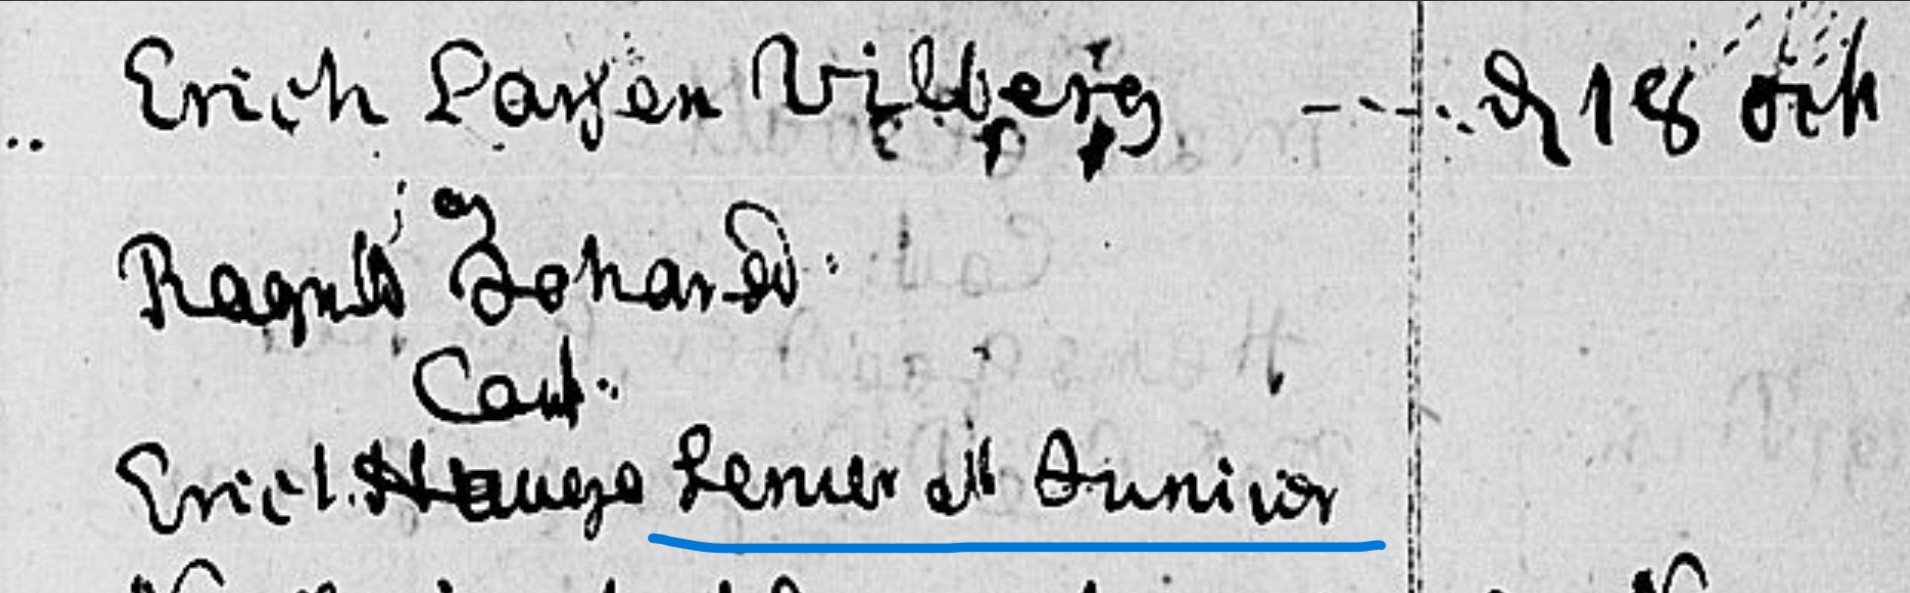 Erich Larsen Vilberg ---- d 18 oct
og
Ragnild Johansd:
Caut:
Erich Hauge Senier et Junior